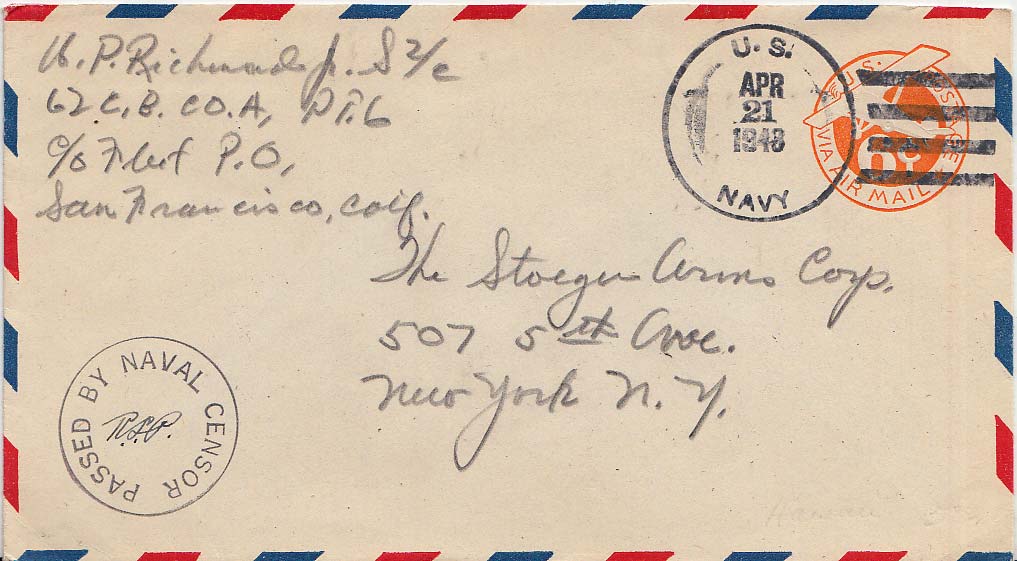 U. P. Richmond Jr. S 2/c
62 C.B. CO. A, PT. 6
c/o Fleet P.O,
San Francisco, Calif.
U. S.
APR
21
1943
NAVY
U.S. POSTAGE
6¢
VIA AIR MAIL
The Stoeger Arms Corp.
507 5th Ave.
New York N. Y.
PASSED BY NAVAL CENSOR
R.S.P.